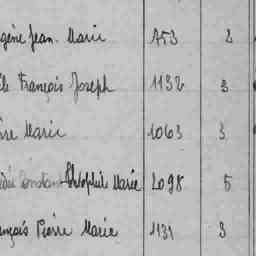 gène Jean. Marie 753 2
François Joseph 1132 3
Marie 1063 3
Constant Théophile Marie 2098 5
nçois Pierre Marie 1131 3